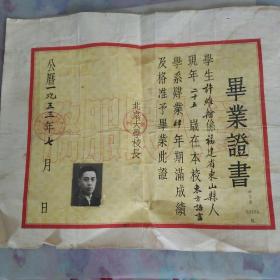 畢業證書
學生許維僧係福建省東山縣人
現年二十五歲在本校東方語言
學系肄業肆年期滿成績
及格准予畢業此證
北京大學校長
公曆一九五三年七月 日